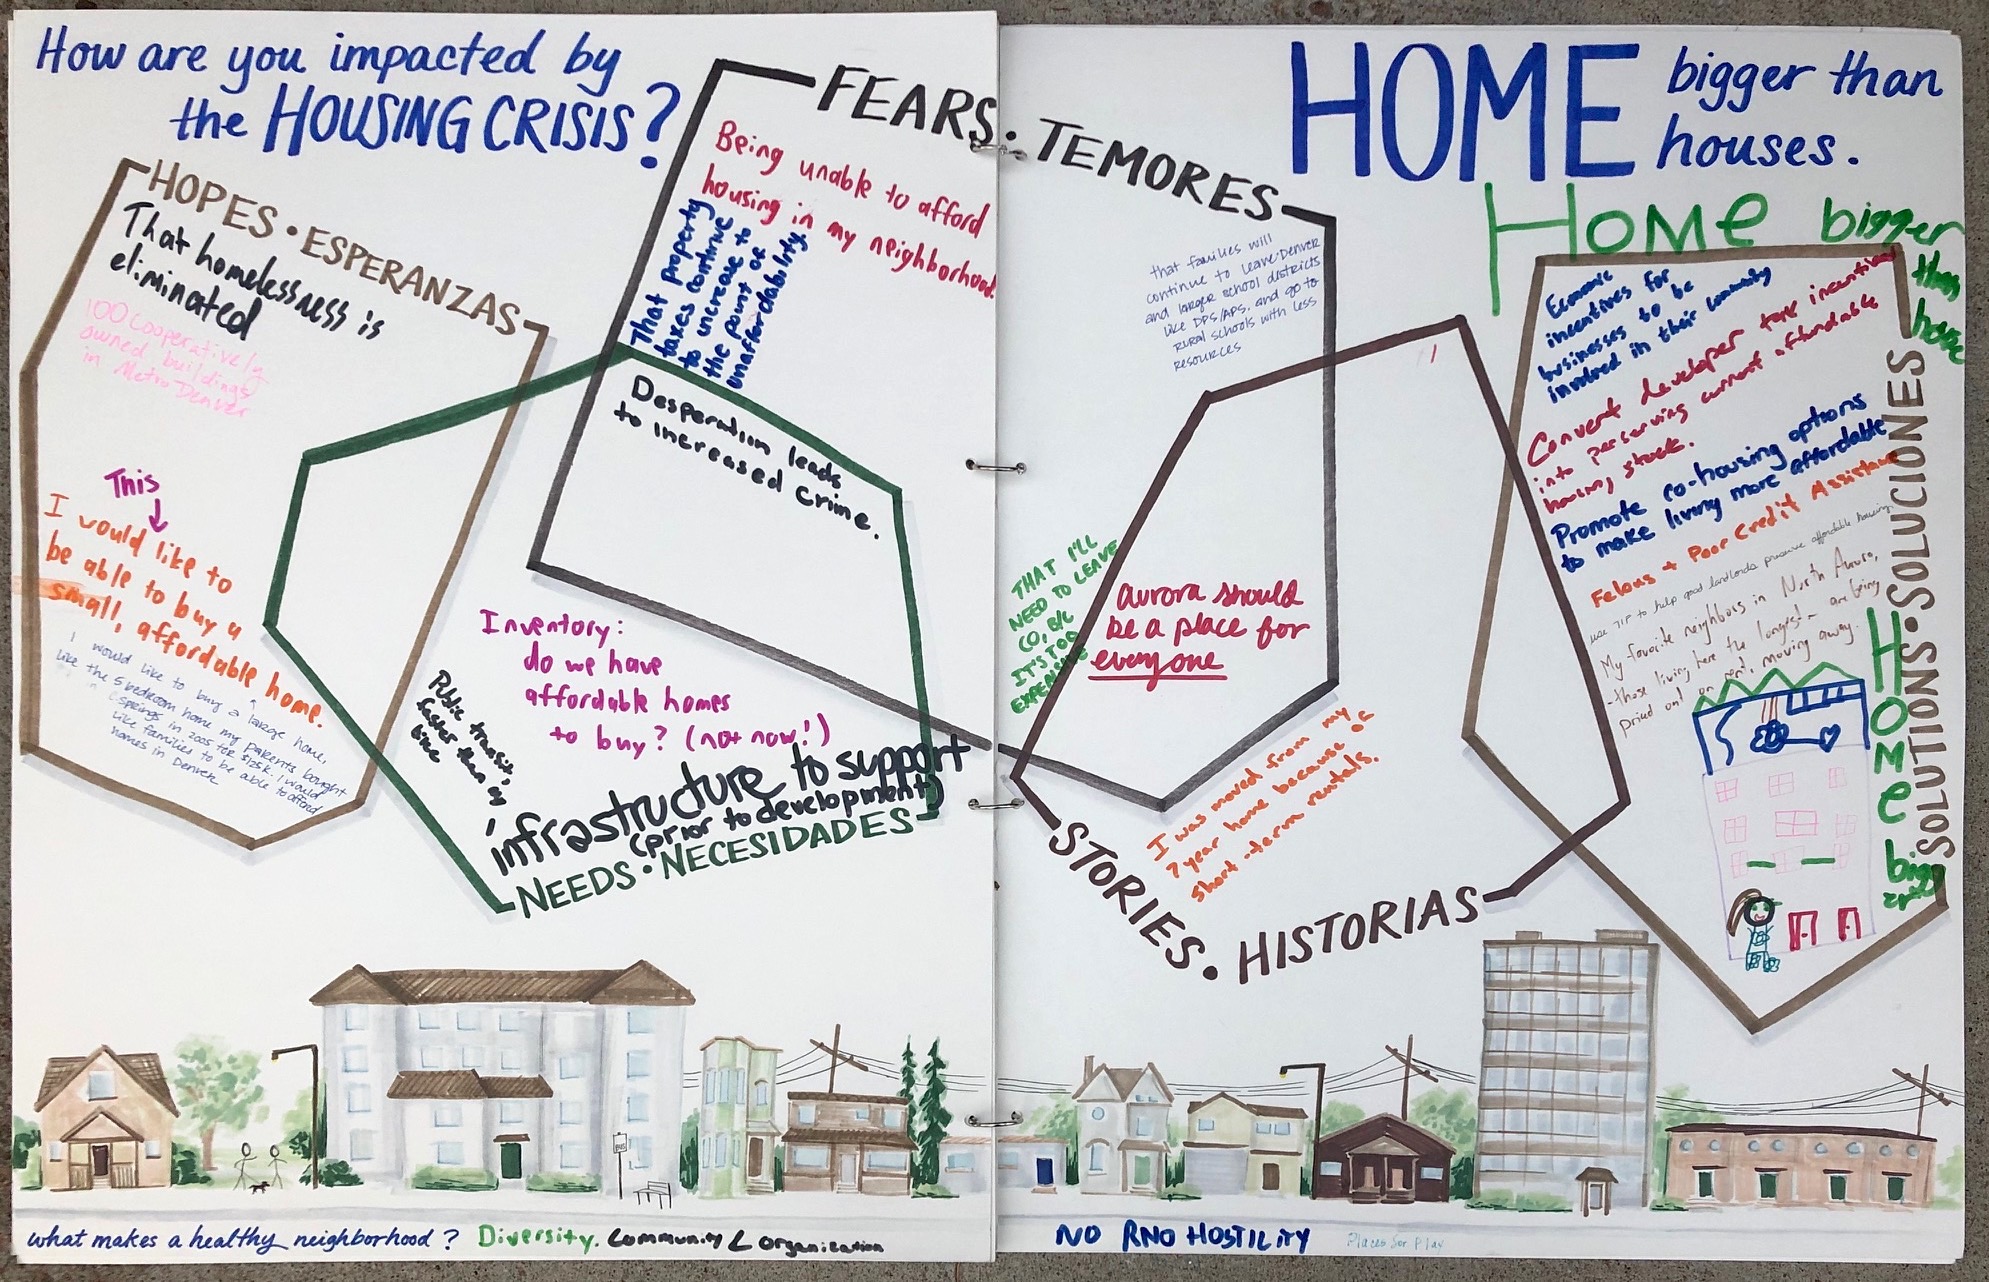 How are you impacted by
the HOUSING CRISIS?
HOPES • ESPERANZAS
That homelessness is
eliminated
100 Cooperatively
owned buildings
in Metro Denver
This
I would like to
be able to buy a
small, affordable home.
I would like to buy a large home,
like the 5 bedroom home my parents bought
in C-Springs in 2005 for $125K. I would
like families to be able to afford
homes in Denver
FEARS • TEMORES
Being unable to afford
housing in my neighborhood.
That property
taxes continue
to increase to
the point of
unaffordability.
Desperation leads
to increased crime.
that families will
continue to leave Denver
and larger school districts
like DPS/APS. and go to
rural schools with less
resources
THAT I'LL
NEED TO LEAVE
CO, B/C
IT'S TOO
EXPENSIVE
Inventory:
do we have
affordable homes
to buy? (not now!)
Public transit,
faster than a
bike
infrastructure to support
(prior to development)
NEEDS • NECESIDADES
Aurora should
be a place for
everyone
I was moved from my
7 year home because of
short-term rentals.
STORIES • HISTORIAS
HOME bigger than
houses.
Home bigger
than
house
Economic
incentives for
businesses to be
involved in their community
Convert developer tax incentives
into perserving current affordable
housing stock.
Promote co-housing options
to make living more affordable
Felons + Poor Credit Assistance
use TIF to help good landlords preserve affordable housing.
My favorite neighbors in North Aurora,
-those living here the longest- are being
priced out on rent, moving away.
Home
big
SOLUTIONS • SOLUCIONES
BUS
what makes a healthy neighborhood? Diversity. Community organization
NO RNO HOSTILITY
Places for Play